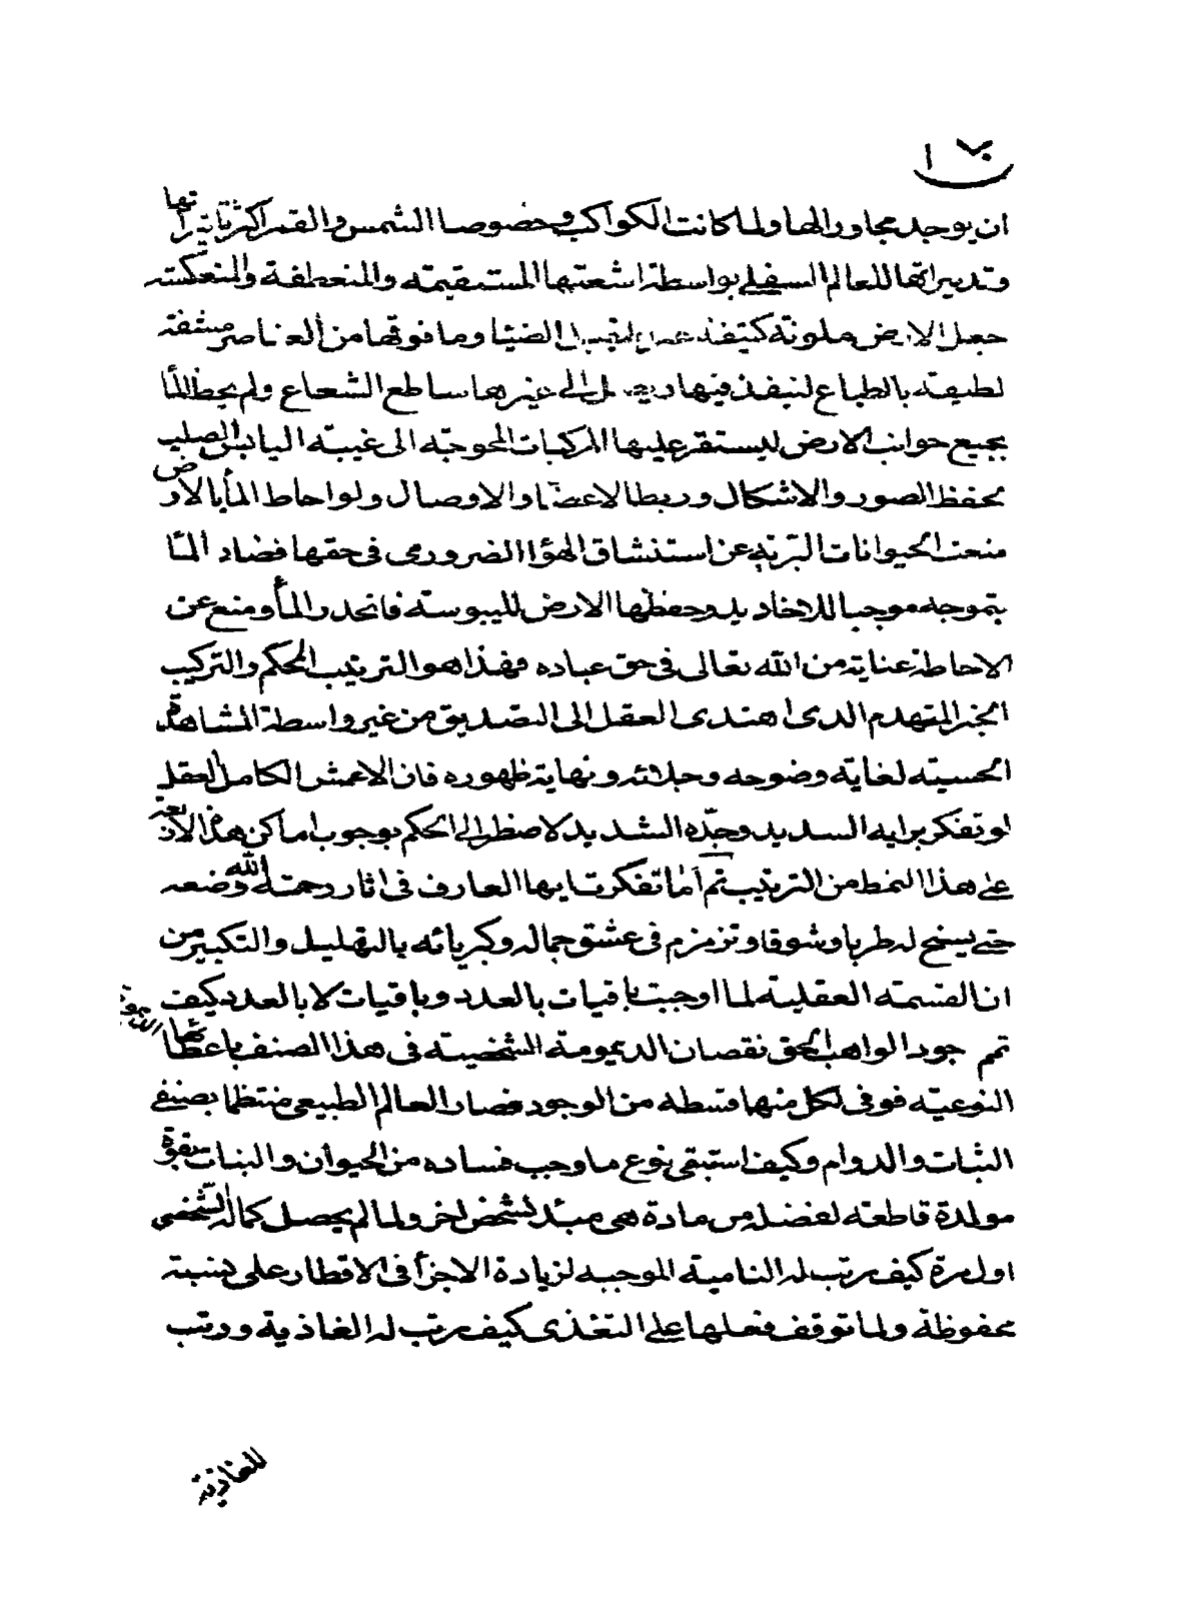 ان يوجد مجاورا لها ولما كانت الكواكب وخصوصا الشمس والقمر اكثر تاثيراتها
وتدبيراتها للعالم السفلى بواسطة اشعتها المستقيمة والمنعطفة والمنعكسة
جعل الارض ملونة كثيفة لتقبل الضيا وما فوقها من العناصر مشفة
لطيفة بالطباع لينفذ فيها الى غيرها ساطع الشعاع ولم يحط الماء
بجميع جوانب الارض ليستقر عليها المركبات المحوجة الى غيبة اليابس الصلب
بحفظ الصور والاشكال وربط الاعضاء والاوصال ولو احاط الماء بالارض
منعت الحيوانات البرية عن استنشاق الهواء الضرورى فى حقها فصار الماء
بتموجه موجبا للاخاديد وحفظها الارض لليبوسة فانحدر الماء ومنع عن
الاحاطة عناية من الله تعالى فى حق عباده فهذا هو الترتيب المحكم والتركيب
الغير المتهدم الذى اهتدى العقل الى التصديق من غير واسطة المشاهدة
الحسية لغاية وضوحه وجلائه ونهاية ظهوره فان الاعمش الكامل العقل
لو تفكر برايه السديد وجدّه الشديد لاضطر الى الحكم بوجوب اماكن هذه الاربعة
على هذا النمط من الترتيب ثم اما تفكرت ايها العارف فى اثار رحمة الله وصنعه
حتى يسنح له طربا وشوقا وتزمزم فى عشق جماله وكبريائه بالتهليل والتكبير من
ان القسمة العقلية لما اوجبت باقيات بالعدد وباقيات لا بالعدد كيف
تمم جود الواهب الحق نقصان الديمومة الشخصية فى هذا الصنف باعطائها الديمومة
النوعية فوفى لكل منها قسطه من الوجود فصار العالم الطبيعى منتظما بصنفى
الثبات والدوام وكيف استبقى نوع ما وجب فساده من الحيوان والنبات بقوة
مولدة قاطعة لفضلة من مادة هى مبدء لشخص اخر ولما لم يحصل كماله الشخصى
اول مرة كيف رتب له النامية الموجبة لزيادة الاجزاء فى الاقطار على نسبة
محفوظة ولما توقف فعلها على التغذى كيف رتب له الغاذية ورتب
للغاذية